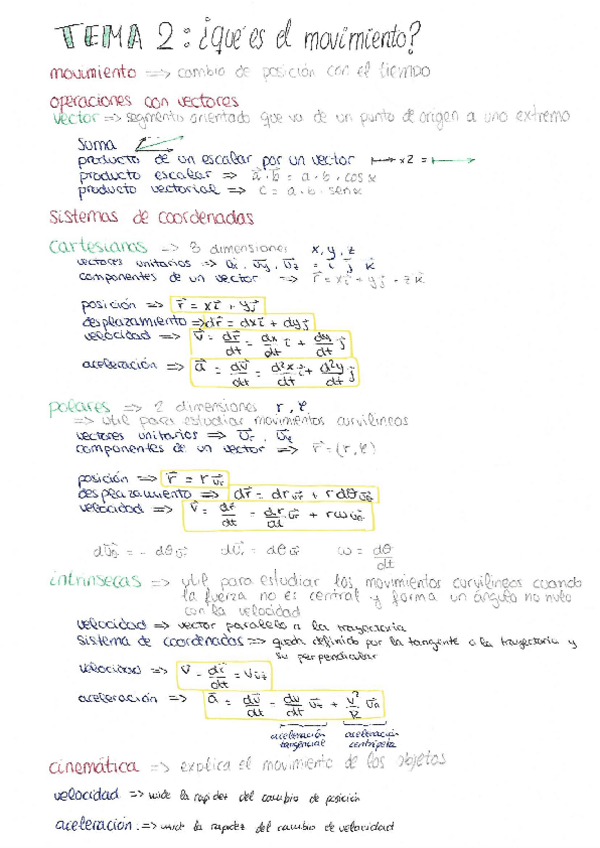 TEMA 2: ¿que es el movimiento?
movimiento => cambio de posición con el tiempo
operaciones con vectores
vector => segmento orientado que va de un punto de origen a uno extremo
suma
producto de un escalar por un vector x2 =
producto escalar => a⃗ · b⃗ = a · b · cos x
producto vectorial => c = a · b · sen x
sistemas de coordenadas
cartesianas => 3 dimensiones x, y, z
vectores unitarios => u⃗x, u⃗y, u⃗z = i⃗ j⃗ k⃗
componentes de un vector => r⃗ = xi⃗ + yj⃗ + zk⃗
posición => r⃗ = xi⃗ + yj⃗
desplazamiento => dr⃗ = dxi⃗ + dyj⃗
velocidad => v⃗ = dr⃗/dt = dx/dt i⃗ + dy/dt j⃗
aceleración => a⃗ = dv⃗/dt = d²x/dt i⃗ + d²y/dt j⃗
polares => 2 dimensiones r, φ
=> util para estudiar movimientos curvilineos
vectores unitarios => u⃗r, u⃗φ
componentes de un vector => r⃗ = (r, φ)
posición => r⃗ = r u⃗r
desplazamiento => dr⃗ = dr u⃗r + r dθ u⃗θ
velocidad => v⃗ = dr⃗/dt = dr/dt u⃗r + rω u⃗θ
du⃗θ = - dθ u⃗r du⃗r = dθ u⃗θ ω = dθ/dt
intrinsecas => util para estudiar los movimientos curvilineos cuando
la fuerza no es central y forma un ángulo no nulo
con la velocidad
velocidad => vector paralelo a la trayectoria
sistema de coordenadas => queda definido por la tangente a la trayectoria y
su perpendicular
velocidad => v⃗ = dr⃗/dt = v u⃗t
aceleración => a⃗ = dv⃗/dt = dv/dt u⃗t + v²/R u⃗n
aceleración tangencial aceleración centrípeta
cinemática => explica el movimiento de los objetos
velocidad => mide la rapidez del cambio de posición
aceleración => mide la rapidez del cambio de velocidad